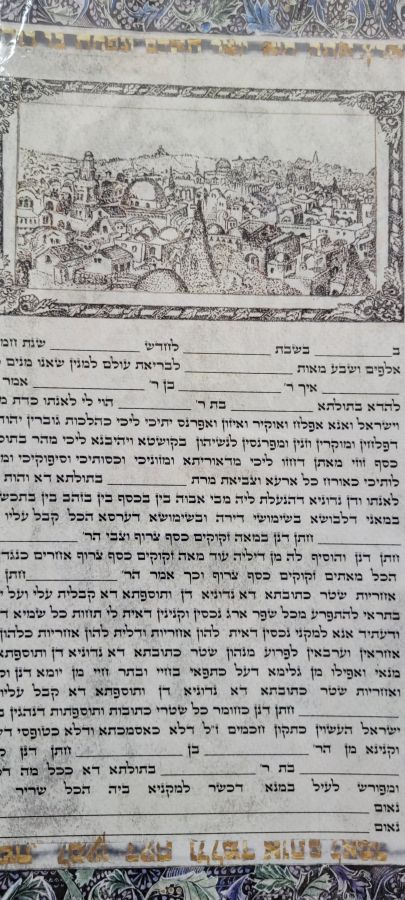 ב בשבת לחדש שנת חמ
אלפים ושבע מאות לבריאת עולם למנין שאנו מנים
איך ר' בן ר' אמר
להדא בתולתא בת ר' הוי לי לאנתו כדת מ
וישראל ואנא אפלח ואוקיר ואיזון ואפרנס יתיכי ליכי כהלכות גוברין יהוד
דפלחין ומוקרין וזנין ומפרנסין לנשיהון בקושטא ויהיבנא ליכי מהר בתול
כסף זוזי מאתן דחזו ליכי מדאוריתא ומזוניכי וכסותיכי וסיפוקיכי ומ
לותיכי כאורח כל ארעא וצביאת מרת בתולתא דא והות
לאנתו ודן נדוניא דהנעלת ליה מבי אבוה בין בכסף בין בזהב בין בתכש
במאני דלבושא בשימושי דירה ובשימושא דערסא הכל קבל עליו
חתן דנן במאה זקוקים כסף צרוף וצבי הר'
חתן דנן והוסיף לה מן דיליה עוד מאה זקוקים כסף צרוף אחרים כנגד
הכל מאתים זקוקים כסף צרוף וכך אמר הר' חתן
אחריות שטר כתובתא דא נדוניא דן ותוספתא דא קבלית עלי ועל י
בתראי להתפרע מכל שפר ארג נכסין וקנינין דאית לי תחות כל שמיא ד
ודעתיד אנא למקני נכסין דאית להון אחריות ודלית להון אחריות כלהון
אחראין וערבאין לפרוע מנהון שטר כתובתא דא נדוניא דן ותוספתא
מנאי ואפילו מן גלימא דעל כתפאי בחיי ובתר חיי מן יומא דנן ו
ואחריות שטר כתובתא דא נדוניא דן ותוספתא דא קבל עליו
חתן דנן כחומר כל שטרי כתובות ותוספתות דנהגין ב
ישראל העשוין כתקון חכמים ז"ל דלא כאסמכתא ודלא כטופסי דש
וקנינא מן הר' בן חתן דנן ל
בת ר' בתולתא דא ככל מה ד
ומפורש לעיל במנא דכשר למקניא ביה הכל שריר
נאום
נאום